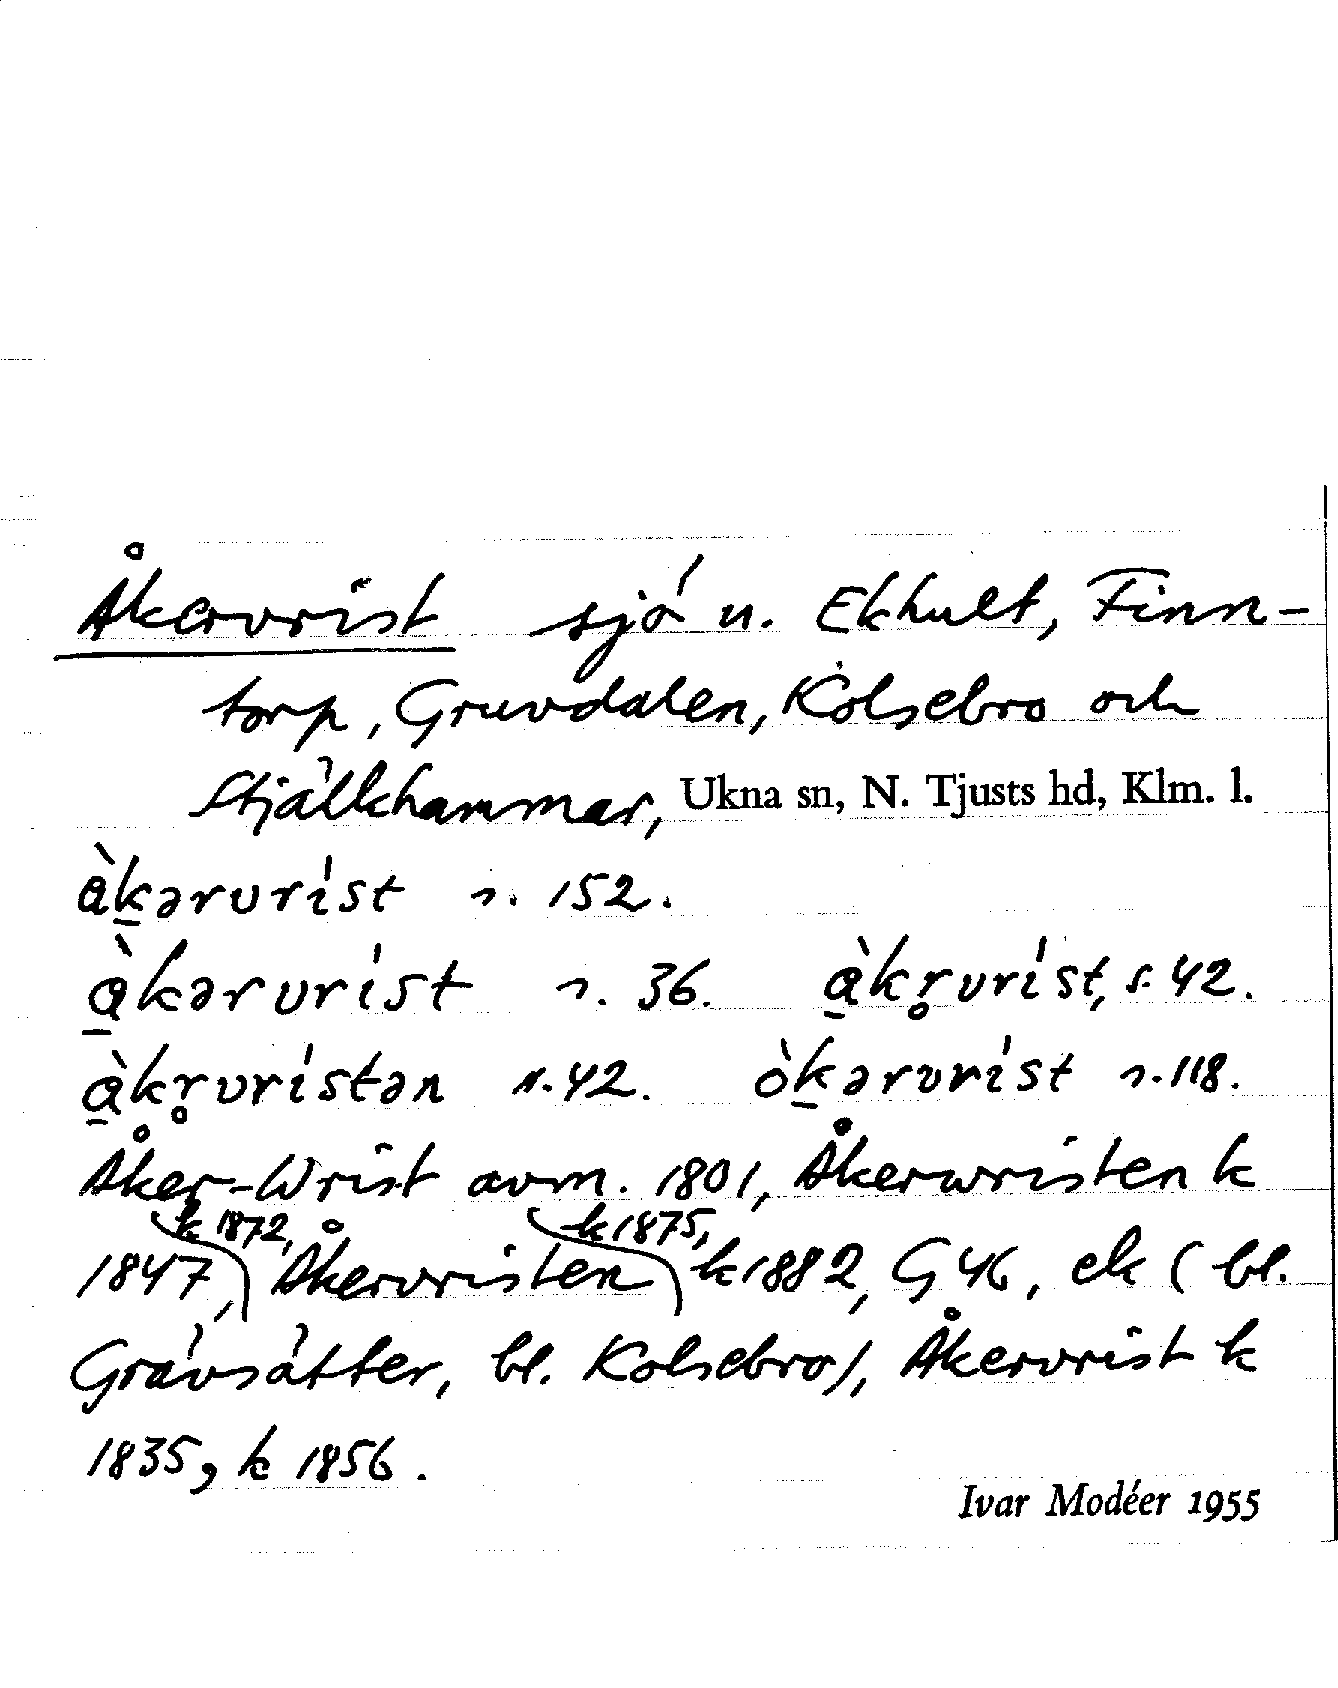 Åkervrist sjö u. Ekhult, Finn-
torp, Gruvdalen, Kolsebro och
Stjälkhammar, Ukna sn, N. Tjusts hd, Klm. l.
àk̠ərvrist s. 152.
à̠kərvrist s. 36. à̠kr̥vrist, s. 42.
à̠kr̥vristən s. 42. òk̠ərvrist s. 118.
Åker-Wrist avm. 1801, Åkerwristen k
1847, k 1872, Åkervristen k 1875, k 1882, G 46, ek (bl.
Gråvsätter, bl. Kolsebro), Åkervrist k
1835, k 1856.
Ivar Modéer 1955